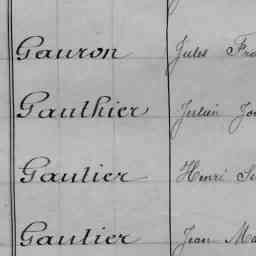 Gauron Jules
Gauthier Julien
Gautier Henri
Gautier Jean